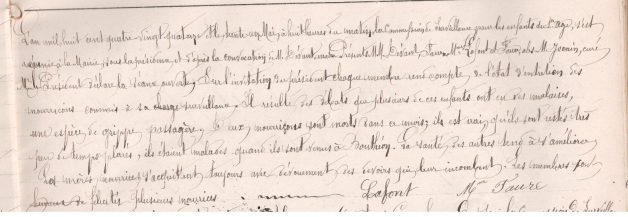 L'an mil huit cent quatre-vingt quatorze et le trente un Mai, à huit heures du matin, la Commission de surveillance pour les enfants du 1er âge, s'est
réunie à la Mairie, sous la présidence et d'après la convocation de M. Présents M. Faure, Mme Lafont et Faure, abs. M. curé
M. le Président déclare la séance ouverte. Sur l'invitation du président chaque membre rend compte de l'état d'entretien des
nourrissons commis à sa charge surveillance. Il résulte des débats que plusieurs de ces enfants ont eu des malaises,
une espèce de grippe passagère, deux nourrissons sont morts dans ce mois; ils est vrai, qu'ils sont restés très
peu de temps placés; ils étaient malades quand ils sont venus à Bouthéon. La santé des autres tend à s'améliorer
Les mères nourrices s'acquittent toujours avec dévouement des devoirs qui leur incombent. Les membres son
de félicités plusieurs nourrices.
Lafont Mme Faure